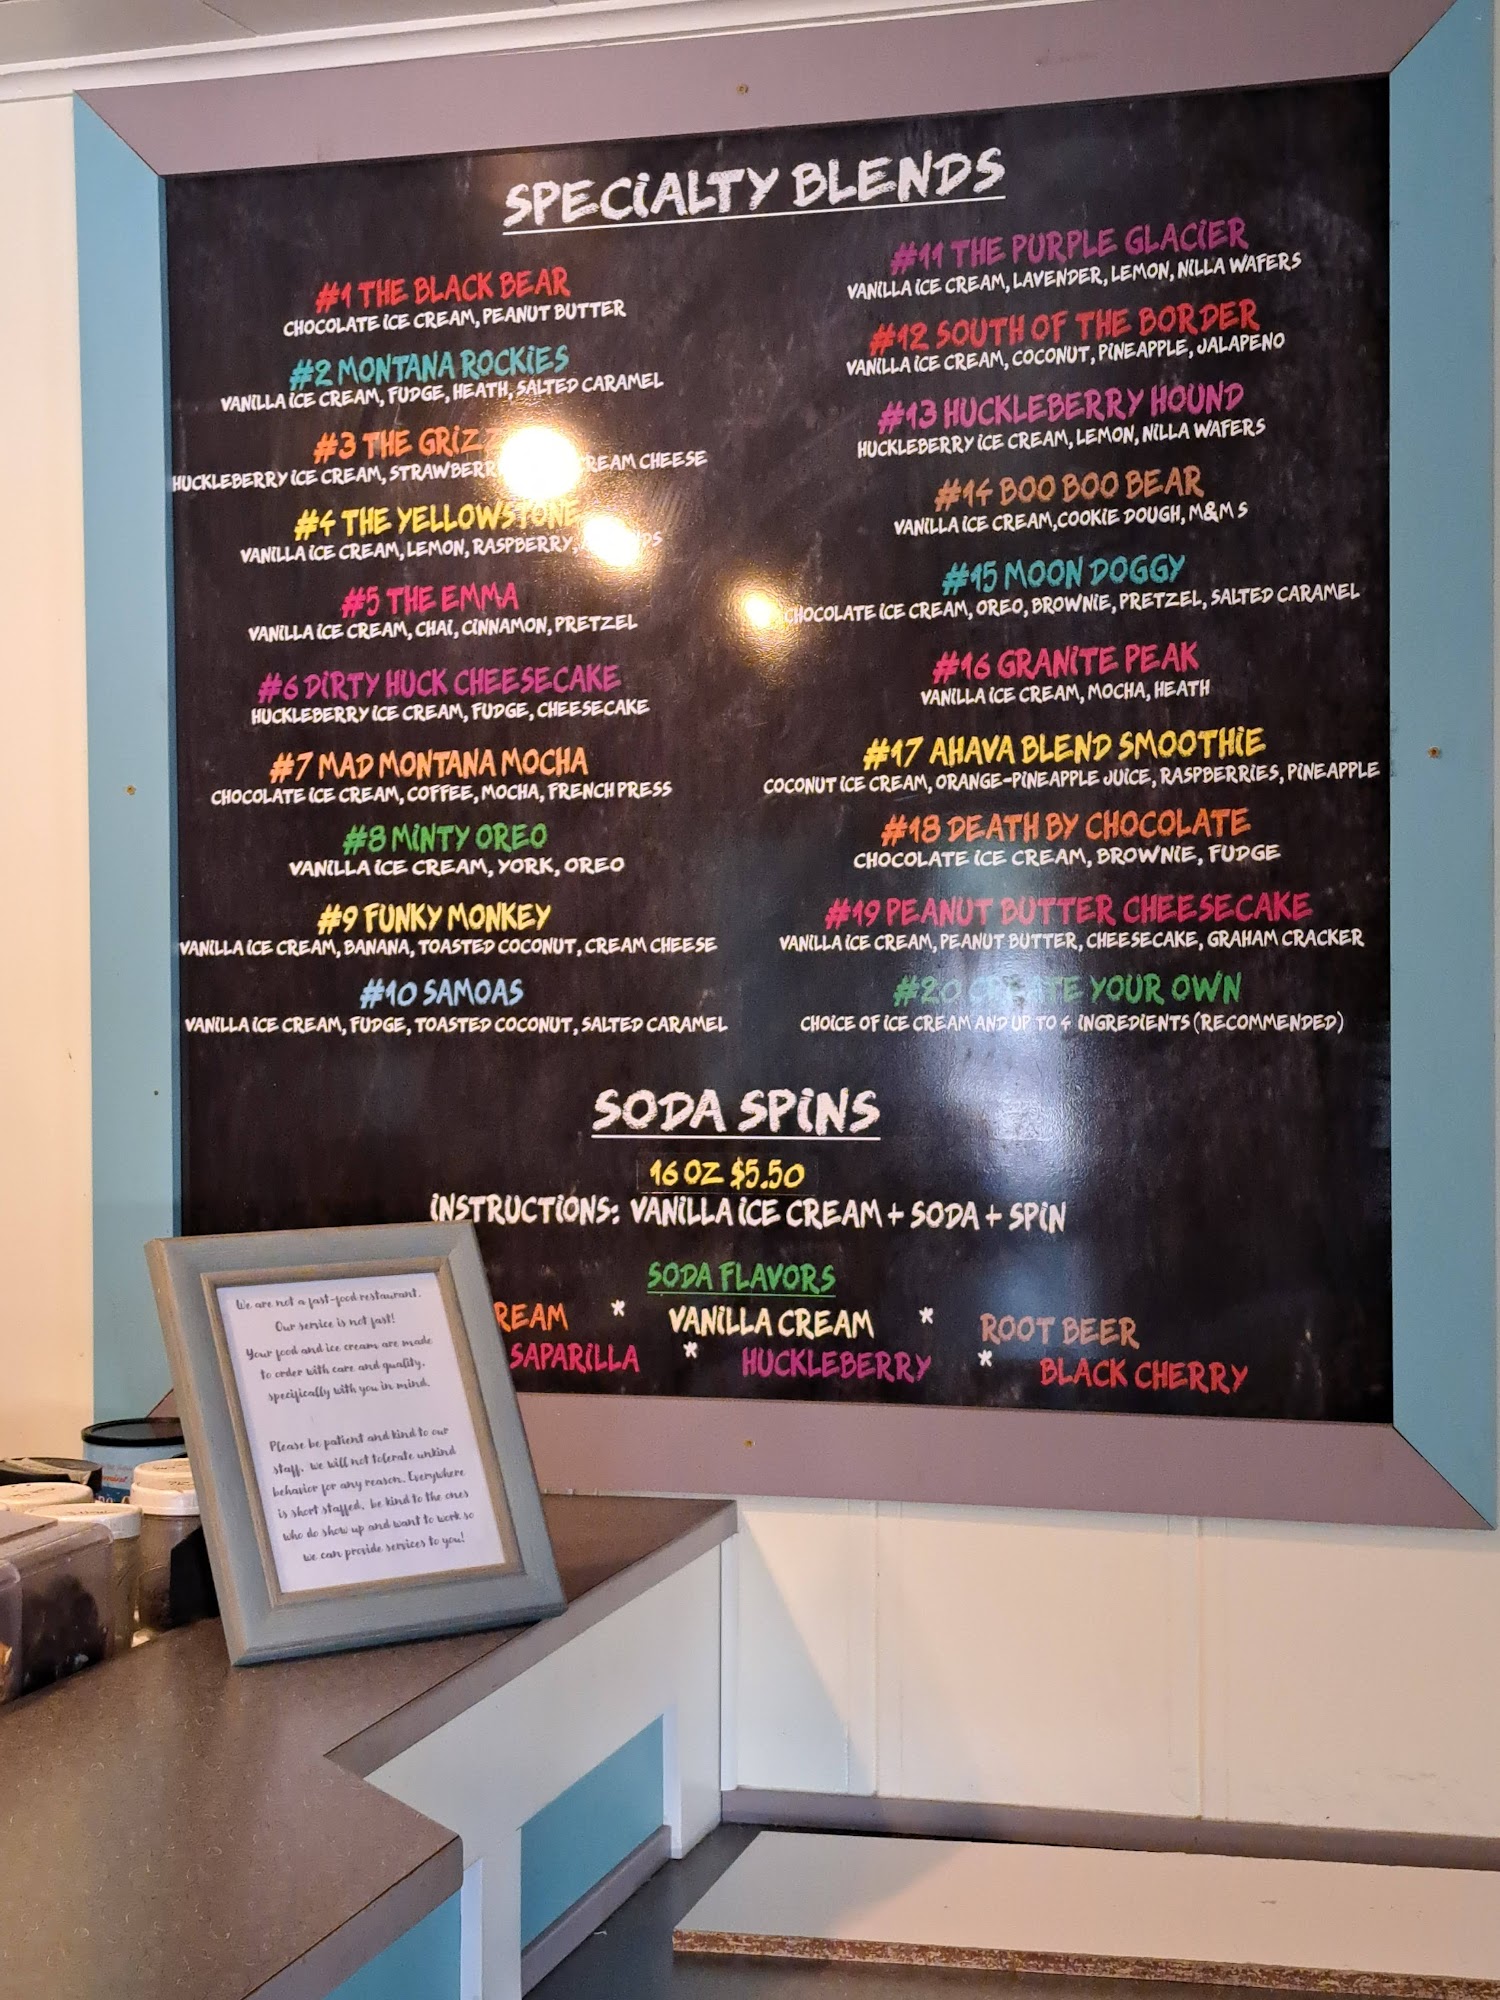 SPECIALTY BLENDS
#1 THE BLACK BEAR
CHOCOLATE ICE CREAM, PEANUT BUTTER
#2 MONTANA ROCKIES
VANILLA ICE CREAM, FUDGE, HEATH, SALTED CARAMEL
#3 THE
HUCKLEBERRY ICE CREAM, CREAM CHEESE
#4 THE YELLOWSTONE
VANILLA ICE CREAM, LEMON, RASPBERRY,
#5 THE EMMA
VANILLA ICE CREAM, CHAI, CINNAMON, PRETZEL
#6 DIRTY HUCK CHEESECAKE
HUCKLEBERRY ICE CREAM, FUDGE, CHEESECAKE
#7 MAD MONTANA MOCHA
CHOCOLATE ICE CREAM, COFFEE, MOCHA, FRENCH PRESS
#8 MINTY OREO
VANILLA ICE CREAM, YORK, OREO
#9 FUNKY MONKEY
VANILLA ICE CREAM, BANANA, TOASTED COCONUT, CREAM CHEESE
#10 SAMOAS
VANILLA ICE CREAM, FUDGE, TOASTED COCONUT, SALTED CARAMEL
#11 THE PURPLE GLACIER
VANILLA ICE CREAM, LAVENDER, LEMON, NILLA WAFERS
#12 SOUTH OF THE BORDER
VANILLA ICE CREAM, COCONUT, PINEAPPLE, JALAPENO
#13 HUCKLEBERRY HOUND
HUCKLEBERRY ICE CREAM, LEMON, NILLA WAFERS
#14 BOO BOO BEAR
VANILLA ICE CREAM,COOKIE DOUGH, M&M S
#15 MOON DOGGY
CHOCOLATE ICE CREAM, OREO, BROWNIE, PRETZEL, SALTED CARAMEL
#16 GRANITE PEAK
VANILLA ICE CREAM, MOCHA, HEATH
#17 AHAVA BLEND SMOOTHIE
COCONUT ICE CREAM, ORANGE-PINEAPPLE JUICE, RASPBERRIES, PINEAPPLE
#18 DEATH BY CHOCOLATE
CHOCOLATE ICE CREAM, BROWNIE, FUDGE
#19 PEANUT BUTTER CHEESECAKE
VANILLA ICE CREAM, PEANUT BUTTER, CHEESECAKE, GRAHAM CRACKER
#20 CREATE YOUR OWN
CHOICE OF ICE CREAM AND UP TO 4 INGREDIENTS (RECOMMENDED)
SODA SPINS
16 OZ $5.50
INSTRUCTIONS: VANILLA ICE CREAM + SODA + SPIN
SODA FLAVORS
REAM * VANILLA CREAM * ROOT BEER
SAPARILLA * HUCKLEBERRY * BLACK CHERRY
We are not a fast-food restaurant.
Our service is not fast!
Your food and ice cream are made
to order with care and quality,
specifically with you in mind.
Please be patient and kind to our
staff, we will not tolerate unkind
behavior for any reason. Everywhere
is short staffed, be kind to the ones
who do show up and want to work so
we can provide services to you!